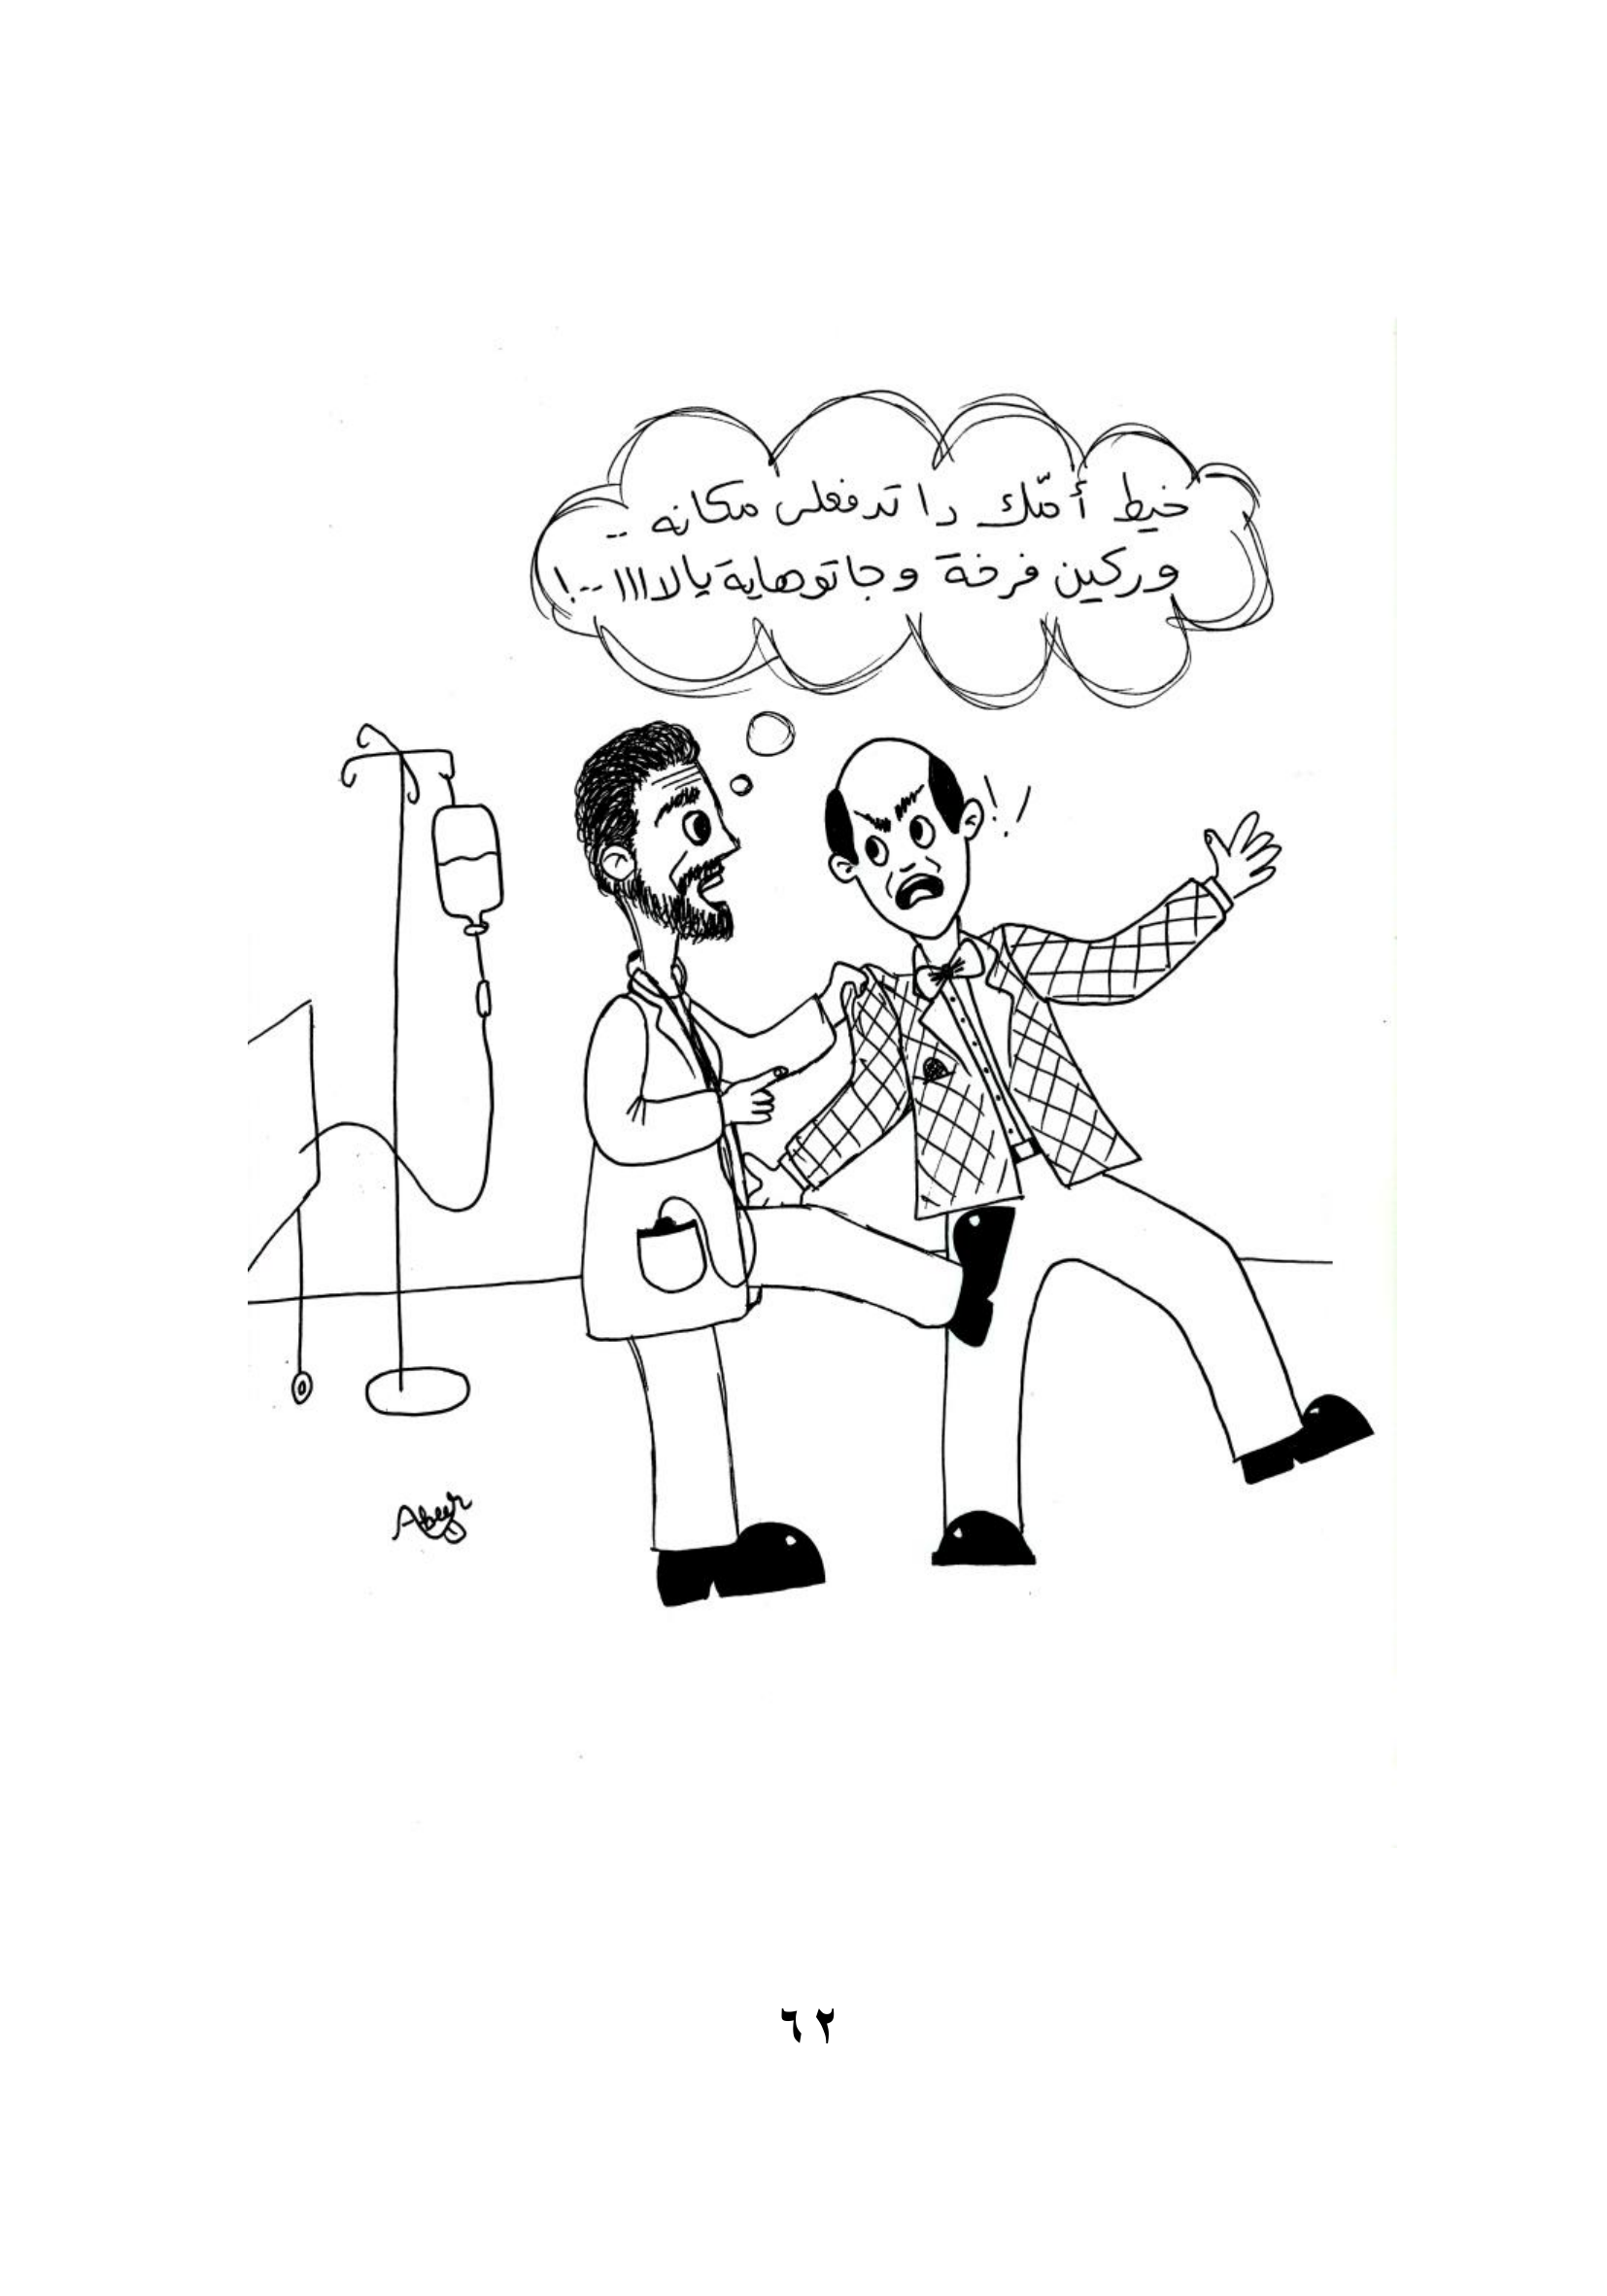 خيط أمّك دا تدفعلى مكانه ..
وركين فرخة وجاتوهاية يالااا ..!
! !
Abeer
٦٢